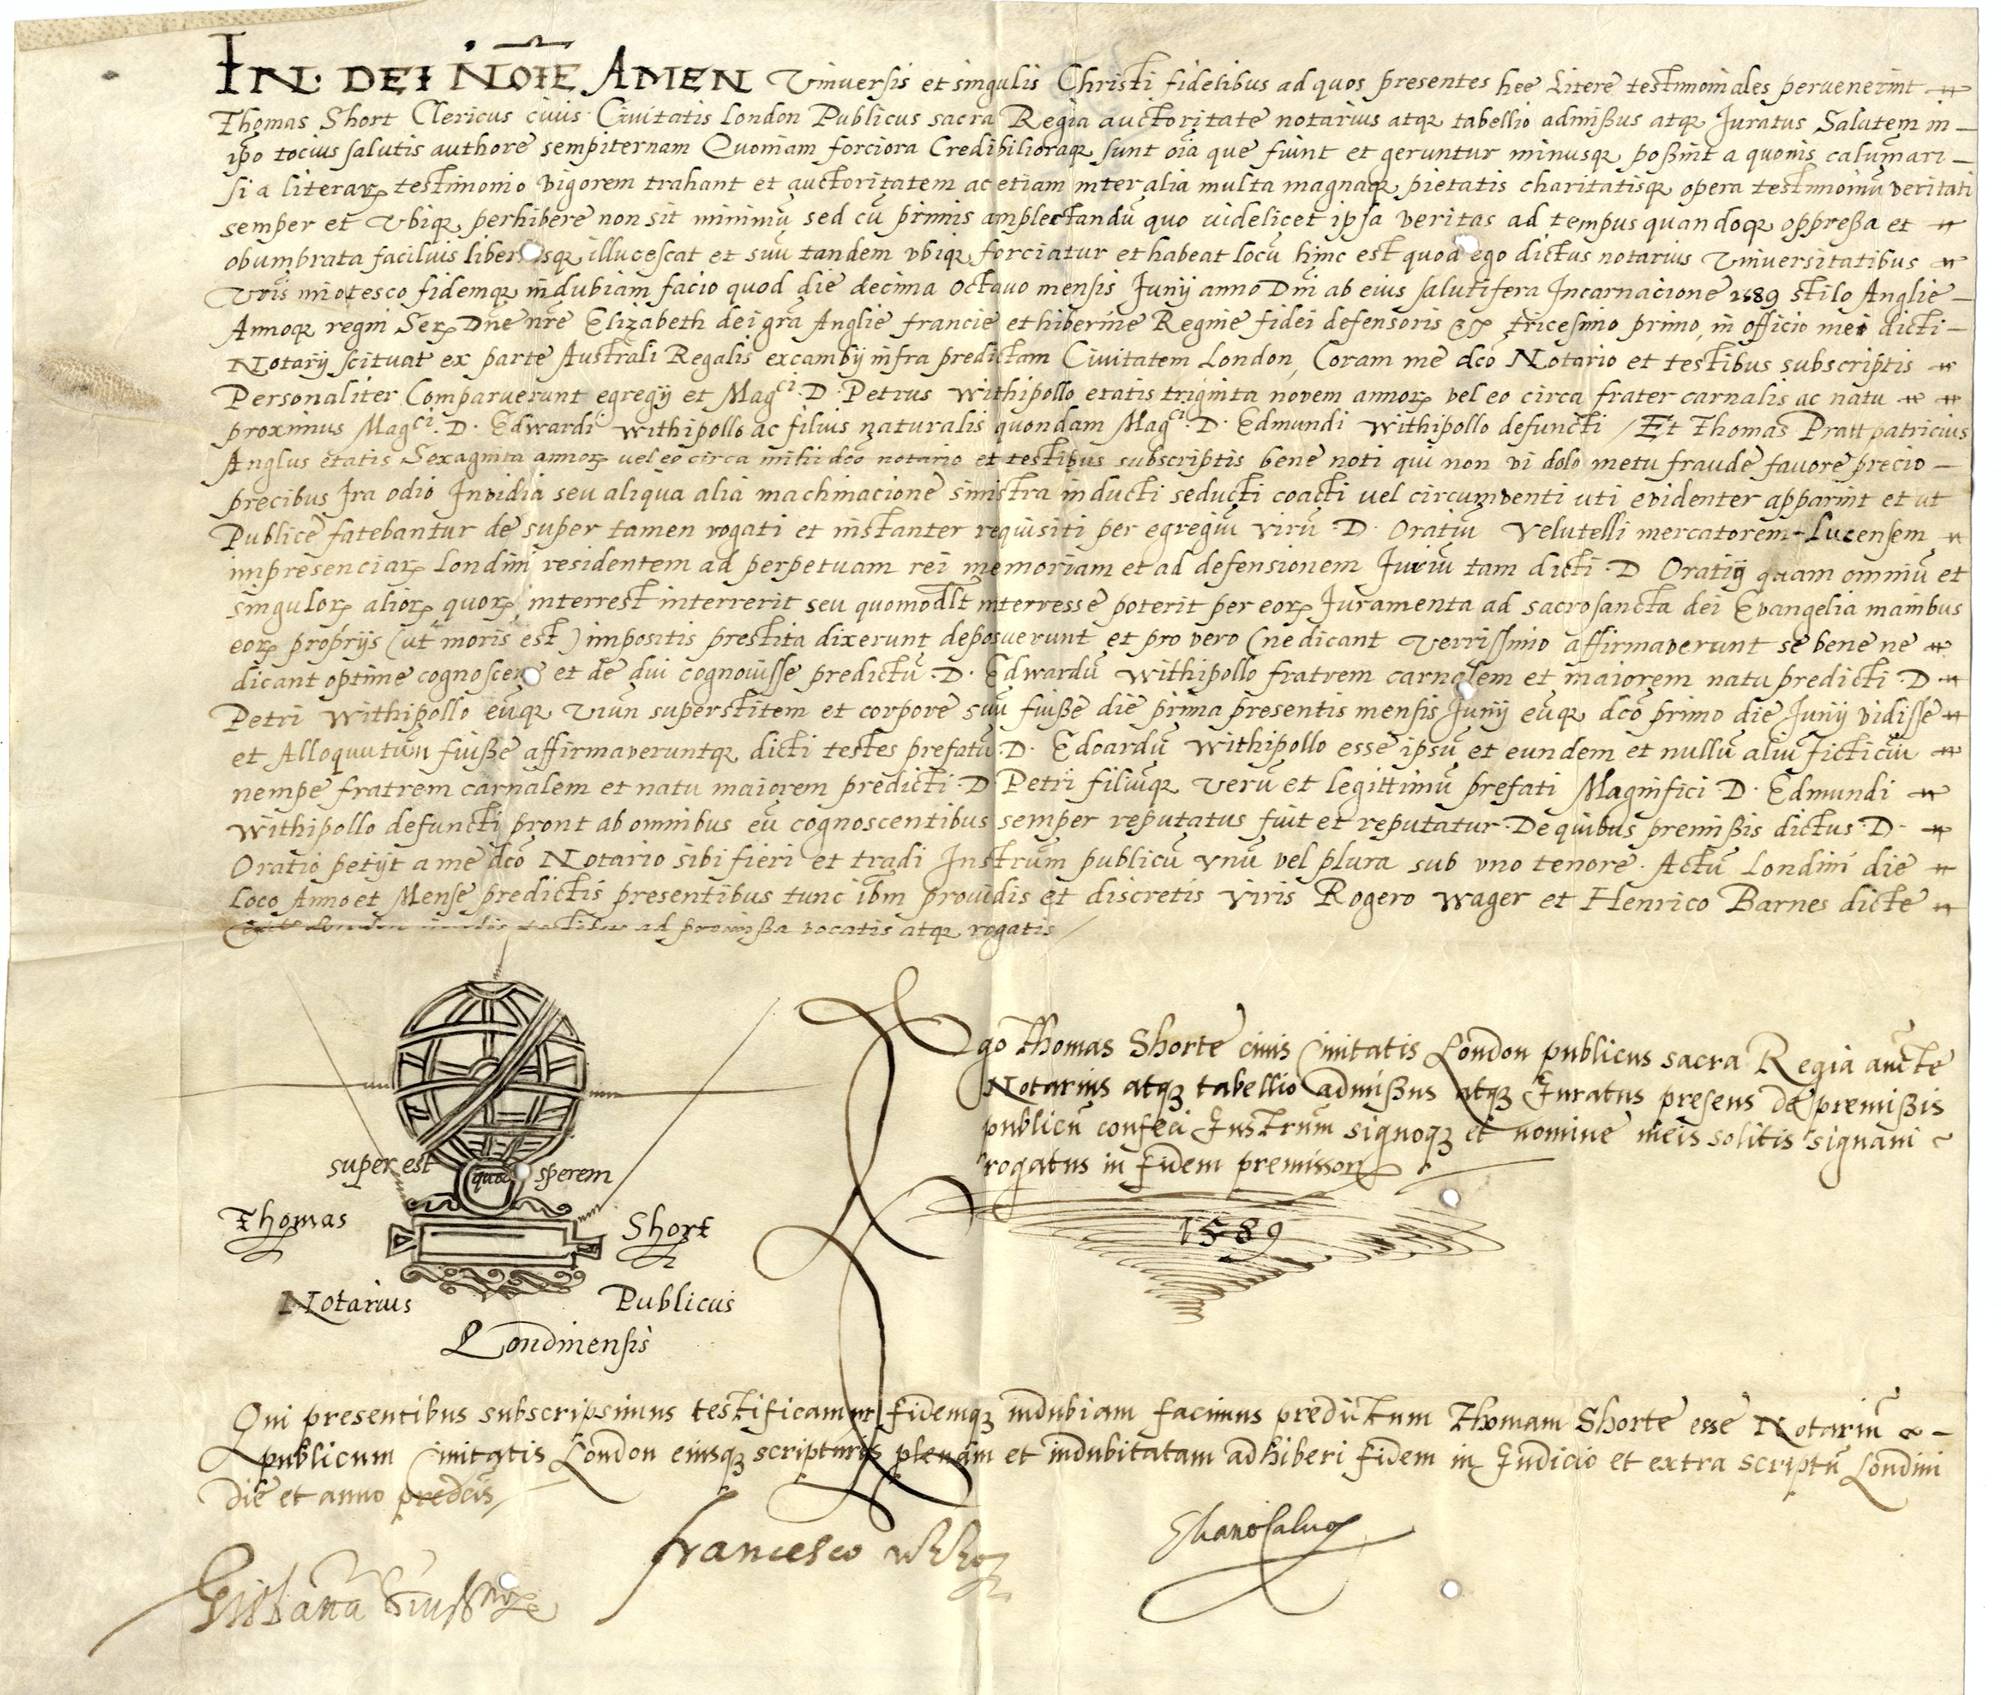 IN · DEI NOĪE AMEN Vniuersis et singulis Christi fidelibus ad quos presentes hee Litere testimoniales peruenerint
Thomas Short Clericus ciuis Ciuitatis London Publicus sacra Regia auctoritate notarius atqꝫ tabellio admißus atqꝫ Juratus Salutem in
ipo tocius salutis authore sempiternam Quoniam forciora Credibilioraqꝫ sunt oīa que fiunt et geruntur minusqꝫ poßint a quouis calumāri
si a literaꝝ testimonio vigorem trahant et auctoritatem ac etiam inter alia multa magnaqꝫ pietatis charitatisqꝫ opera testimoniū veritati
semper et Vbiqꝫ perhibere non sit minimū sed cū primis amplectandū quo uidelicet ipsa veritas ad tempus quandoqꝫ oppreßa et
obumbrata faciluis liber sqꝫ illucescat et suū tandem vbiqꝫ forciatur et habeat locū hinc est quod ego dictus notarius Vniuersitatibus
Vrīs innotesco fidemqꝫ indubiam facio quod die decima octauo mensis Junij anno Dnī ab eius salutifera Incarnacione 1589 stilo Anglie
Annoqꝫ regni Ser Dne nrē Elizabeth dei grā Anglie francie et hibernie Regnie fidei defensoris tricesimo primo, in officio mei dicti
Notarij scituat ex parte Australi Regalis excambij infra predictam Ciuitatem London, Coram me dcō Notario et testibus subscriptis
Personaliter Comparuerunt egregij et Magci · D · Petrus Withipollo etatis triginta novem annoꝝ vel eo circa frater carnalis ac natu
proximus Magci · D · Edwardi Withipollo ac filius naturalis quondam Magci · D · Edmundi Withipollo defuncti / Et Thomas Pratt patricius
Anglus etatis Sexaginta annoꝝ vel eo circa mihi dco notario et testibus subscriptis bene noti qui non vi dolo metu fraude fauore precio
precibus Ira odio Invidia seu aliqua alia machinacione sinistra inducti seducti coacti vel circumventi uti evidenter apparint et ut
Publice fatebantur de super tamen rogati et instanter requisiti per egregiū virū · D · Oratiū Velutelli mercatorem Lucensem
inpresenciaꝝ Londini residentem ad perpetuam rei memoriam et ad defensionem Juriū tam dicti · D Oratij quam omniū et
singuloꝝ alioꝝ quoꝝ interrest interrerit seu quomodlt interresse poterit per eoꝝ Juramenta ad sacrosancta dei Evangelia manibus
eoꝝ proprijs (ut moris est) impositis prestita dixerunt deposuerunt et pro vero (ne dicant Verrissimo affirmaverunt se bene ne
dicant optime cognoscere et de dui cognouisse predictū · D · Edwardū Withipollo fratrem carnalem et maiorem natu predicti D
Petri Withipollo eūqꝫ Viūn superstitem et corpore suū fuiße die prima presentis mensis Junij eūqꝫ dcō primo die Junij vidisse
et Alloquutūn fuiße affirmaveruntqꝫ dicti testes prefatū · D · Edoardū Withipollo esse ipsū et eundem et nullū aliū ficticiū
nempe fratrem carnalem et natu maiorem predicti · D Petri filiūqꝫ Verū et legittimū prefati Magnifici D · Edmundi
Withipollo defuncti pront ab omnibus eū cognoscentibus semper reputatus fuit et reputatur · De quibus premißis dictus · D ·
Oratio petijt a me dco Notario sibi fieri et tradi Instrūm publicū vnū vel plura sub vno tenore · Actū Londini die
Loco Anno et Mense predictis presentibus tunc ibm prouidis et discretis viris Rogero Wager et Henrico Barnes dicte
London testibus ad premißa vocatis atqꝫ rogatis
Ego Thomas Shorte ciuis Ciuitatis London publicus sacra Regia aucte
Notarius atqꝫ tabellio admißus atqꝫ Juratus presens de premißis
publicū confeci Instrūm signoqꝫ et nomine meis solitis signaui
rogatus in fidem premissoꝝ
1589
super est quod sperem
Thomas Short
Notarius Publicus
Londinensis
Qui presentibus subscripsimus testificamur fidemqꝫ indubiam facimus predictum Thomam Shorte esse Notariū &
publicum Ciuitatis London eiusqꝫ scripturis plenam et indubitatam adhiberi fidem in Judicio et extra scriptū Londini
die et anno predcīs
Francesco